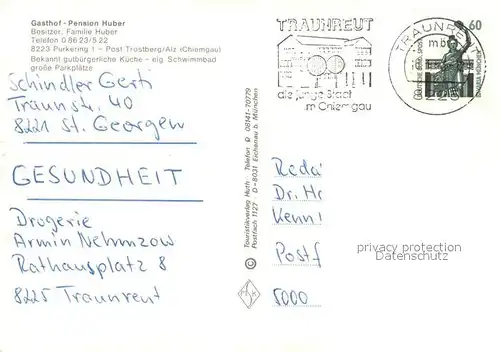 Gasthof - Pension Huber
Besitzer: Familie Huber
Telefon 0 86 23 / 5 22
8223 Purkering 1 – Post Trostberg/Alz (Chiemgau)
Bekannt gutbürgerliche Küche – eig. Schwimmbad
große Parkplätze
Schindler Gerti
Traunstr. 40
8221 St. Georgen
GESUNDHEIT
Drogerie
Armin Nehmzow
Rathausplatz 8
8225 Traunreut
Touristikverlag Huth Telefon 08141-70779
Postfach 1127 D-8031 Eichenau b. München
TRAUNREUT
die junge Stadt
im Chiemgau
TRAUNRE
mb
8225
60
Reda
Dr. Hr
Kenn
Postf
5000
privacy protection
Datenschutz